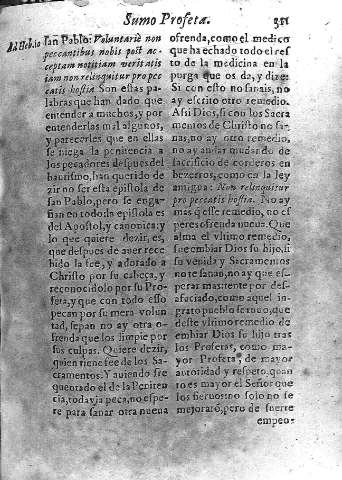 Sumo Profeta. 351
Ad Heb. 10
san Pablo: Voluntariè non
peccantibus nobis post ac-
ceptam notitiam veritatis
iam non relinquitur pro pec
catis hostia. Son estas pa-
labras que han dado que
entender a muchos, y por
entenderlas mal algunos,
y parecerles que en ellas
se niega la penitencia a
los pecadores despues del
bautismo, han querido de
zir no ser esta epistola de
san Pablo, pero se enga-
ñan en todo: la epistola es
del Apostol, y canonica: y
lo que quiere dezir, es,
que despues de auer rece
bido la fee, y adorado a
Christo por su cabeça, y
reconocidolo por su Pro-
feta, y que con todo esso
pecan por su mera volun
tad, sepan no ay otra o-
frenda que los limpie por
sus culpas. Quiere dezir,
quien tiene fee de los Sa-
cramentos. Y auiendo fre
quentado el de la Peniten
cia, todavia peca, no espe-
re para sanar otra nueua
ofrenda, como el medico
que ha echado todo el res
to de la medicina en la
purga que os da, y dize:
Si con esto no sanais, no
ay escrito otro remedio.
Assi Dios, si con los Sacra
mentos de Christo no sa-
nas, no ay otro remedio,
no ay andar mudando de
sacrificio de corderos en
bezerros, como en la ley
antigua: Non relinquitur
pro peccatis hostia. No ay
mas q̃ este remedio, no es
peres ofrenda nueua. Que
alma el vltimo remedio,
fue embiar Dios su hijo, si
su venida y Sacramentos
no te sanan, no ay que es-
perar mas, tente por des-
afuciado, como aquel in-
grato pueblo
deste vltimo remedio de
embiar Dios su hijo tras
los Profetas, como ma-
yor Profeta, de mayor
autoridad y respeto, quan
to es mayor el Señor que
los sieruos: no solo no se
mejoraró, pero de suerte
empeo-